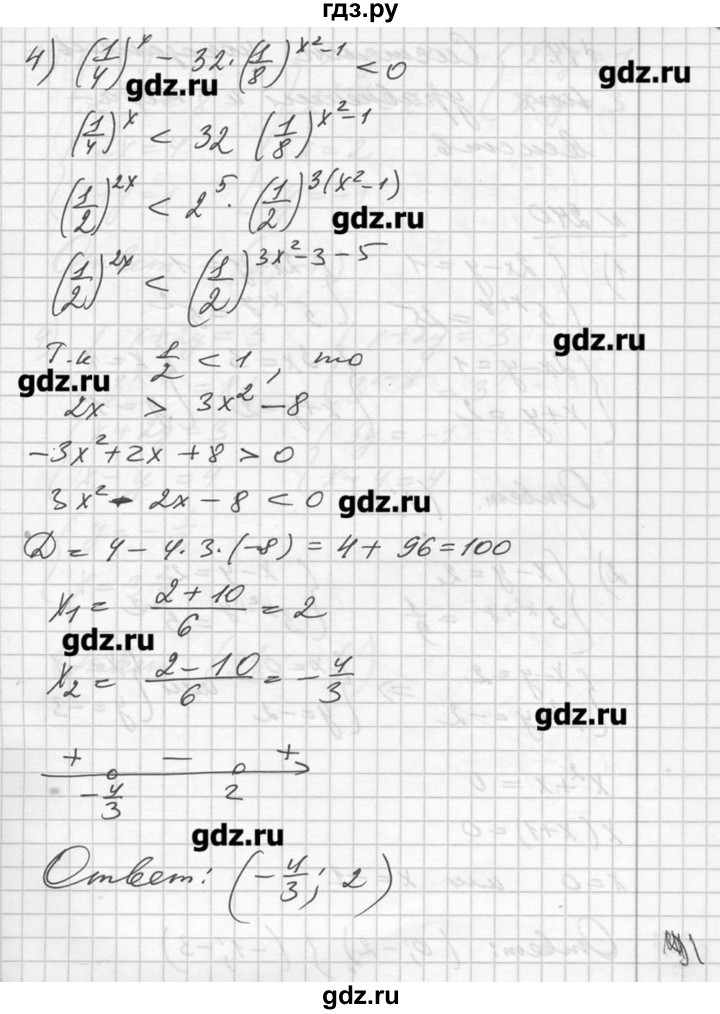 гдз.ру
4) (1/4)^x - 32·(1/8)^(x²-1) < 0
gdz.ru
gdz.ru
(1/4)^x < 32 (1/8)^(x²-1)
(1/2)^(2x) < 2^5 · (1/2)^(3(x²-1))
gdz.ru
(1/2)^(2x) < (1/2)^(3x²-3-5)
gdz.ru
Т.к 1/2 < 1, то
gdz.ru
2x > 3x² - 8
-3x² + 2x + 8 > 0
3x² - 2x - 8 < 0
gdz.ru
D = 4 - 4·3·(-8) = 4 + 96 = 100
x₁ = (2+10)/6 = 2
gdz.ru
x₂ = (2-10)/6 = -4/3
gdz.ru
+ − +
-4/3 2
gdz.ru
Ответ: (-4/3; 2)
gdz.ru